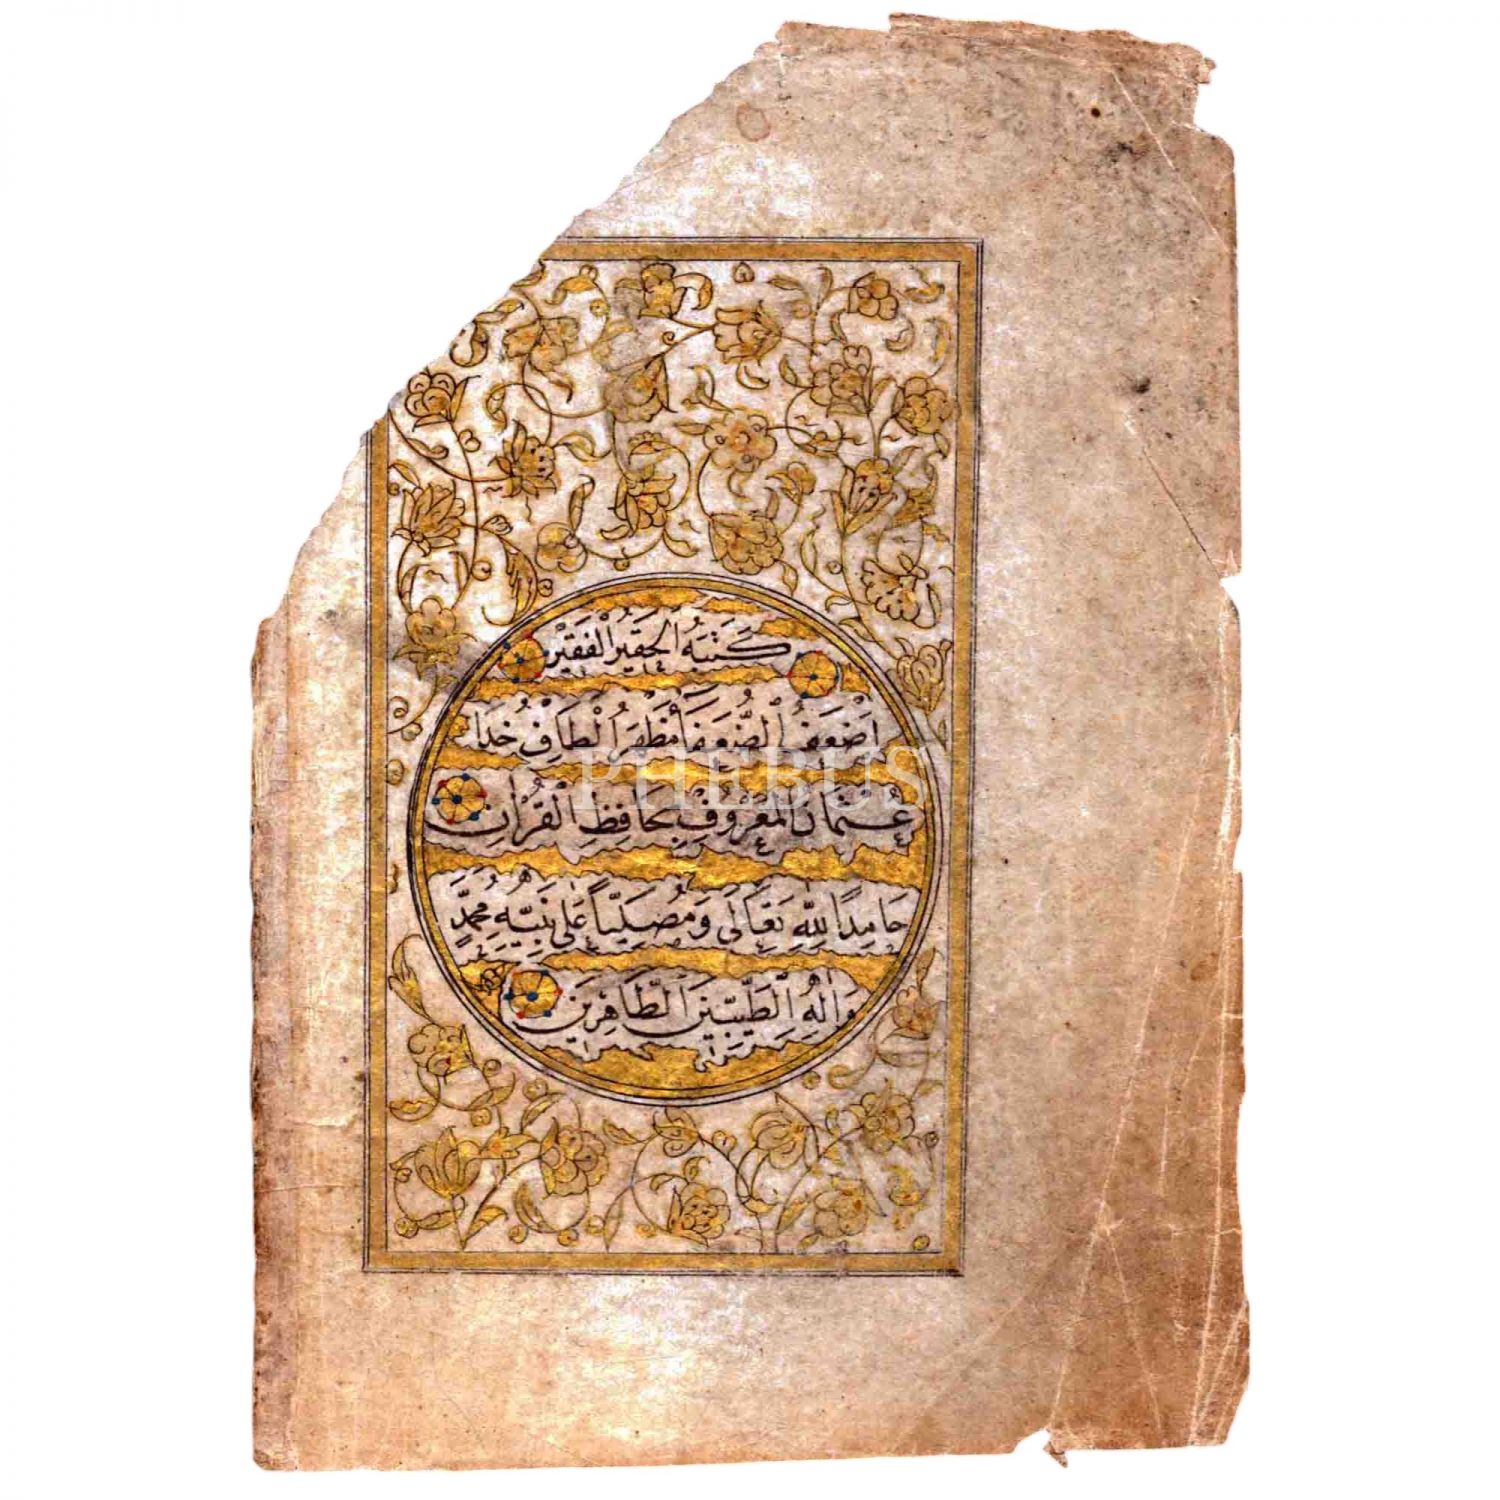 كَتَبَهُ الْحَقِيرُ الْفَقِيرُ
اَضْعَفُ الضُّعَفَاۤ مَظْهَرُ اَلْطَافِ خُدَا
عُثْمَانُ الْمَعْرُوفُ بِحَافِظِ الْقُرْاٰنِ
حَامِدًا لِلّٰهِ تَعَالَى وَمُصَلِّيًا عَلٰى نَبِيِّهِ مُحَمَّدٍ
وَاٰلِهِ الطَّيِّبِينَ الطَّاهِرِينَ
PHEBUS